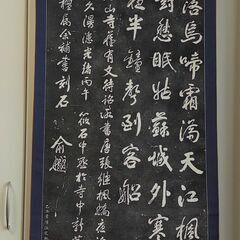 落烏啼霜滿天江楓
對愁眠姑蘇城外寒
夜半鐘聲到客船
山寺舊有文待詔所書唐張繼楓橋夜泊
久漫漶光緒丙午
筱石中丞於寺中新葺
楹屬余補書刻石
俞樾